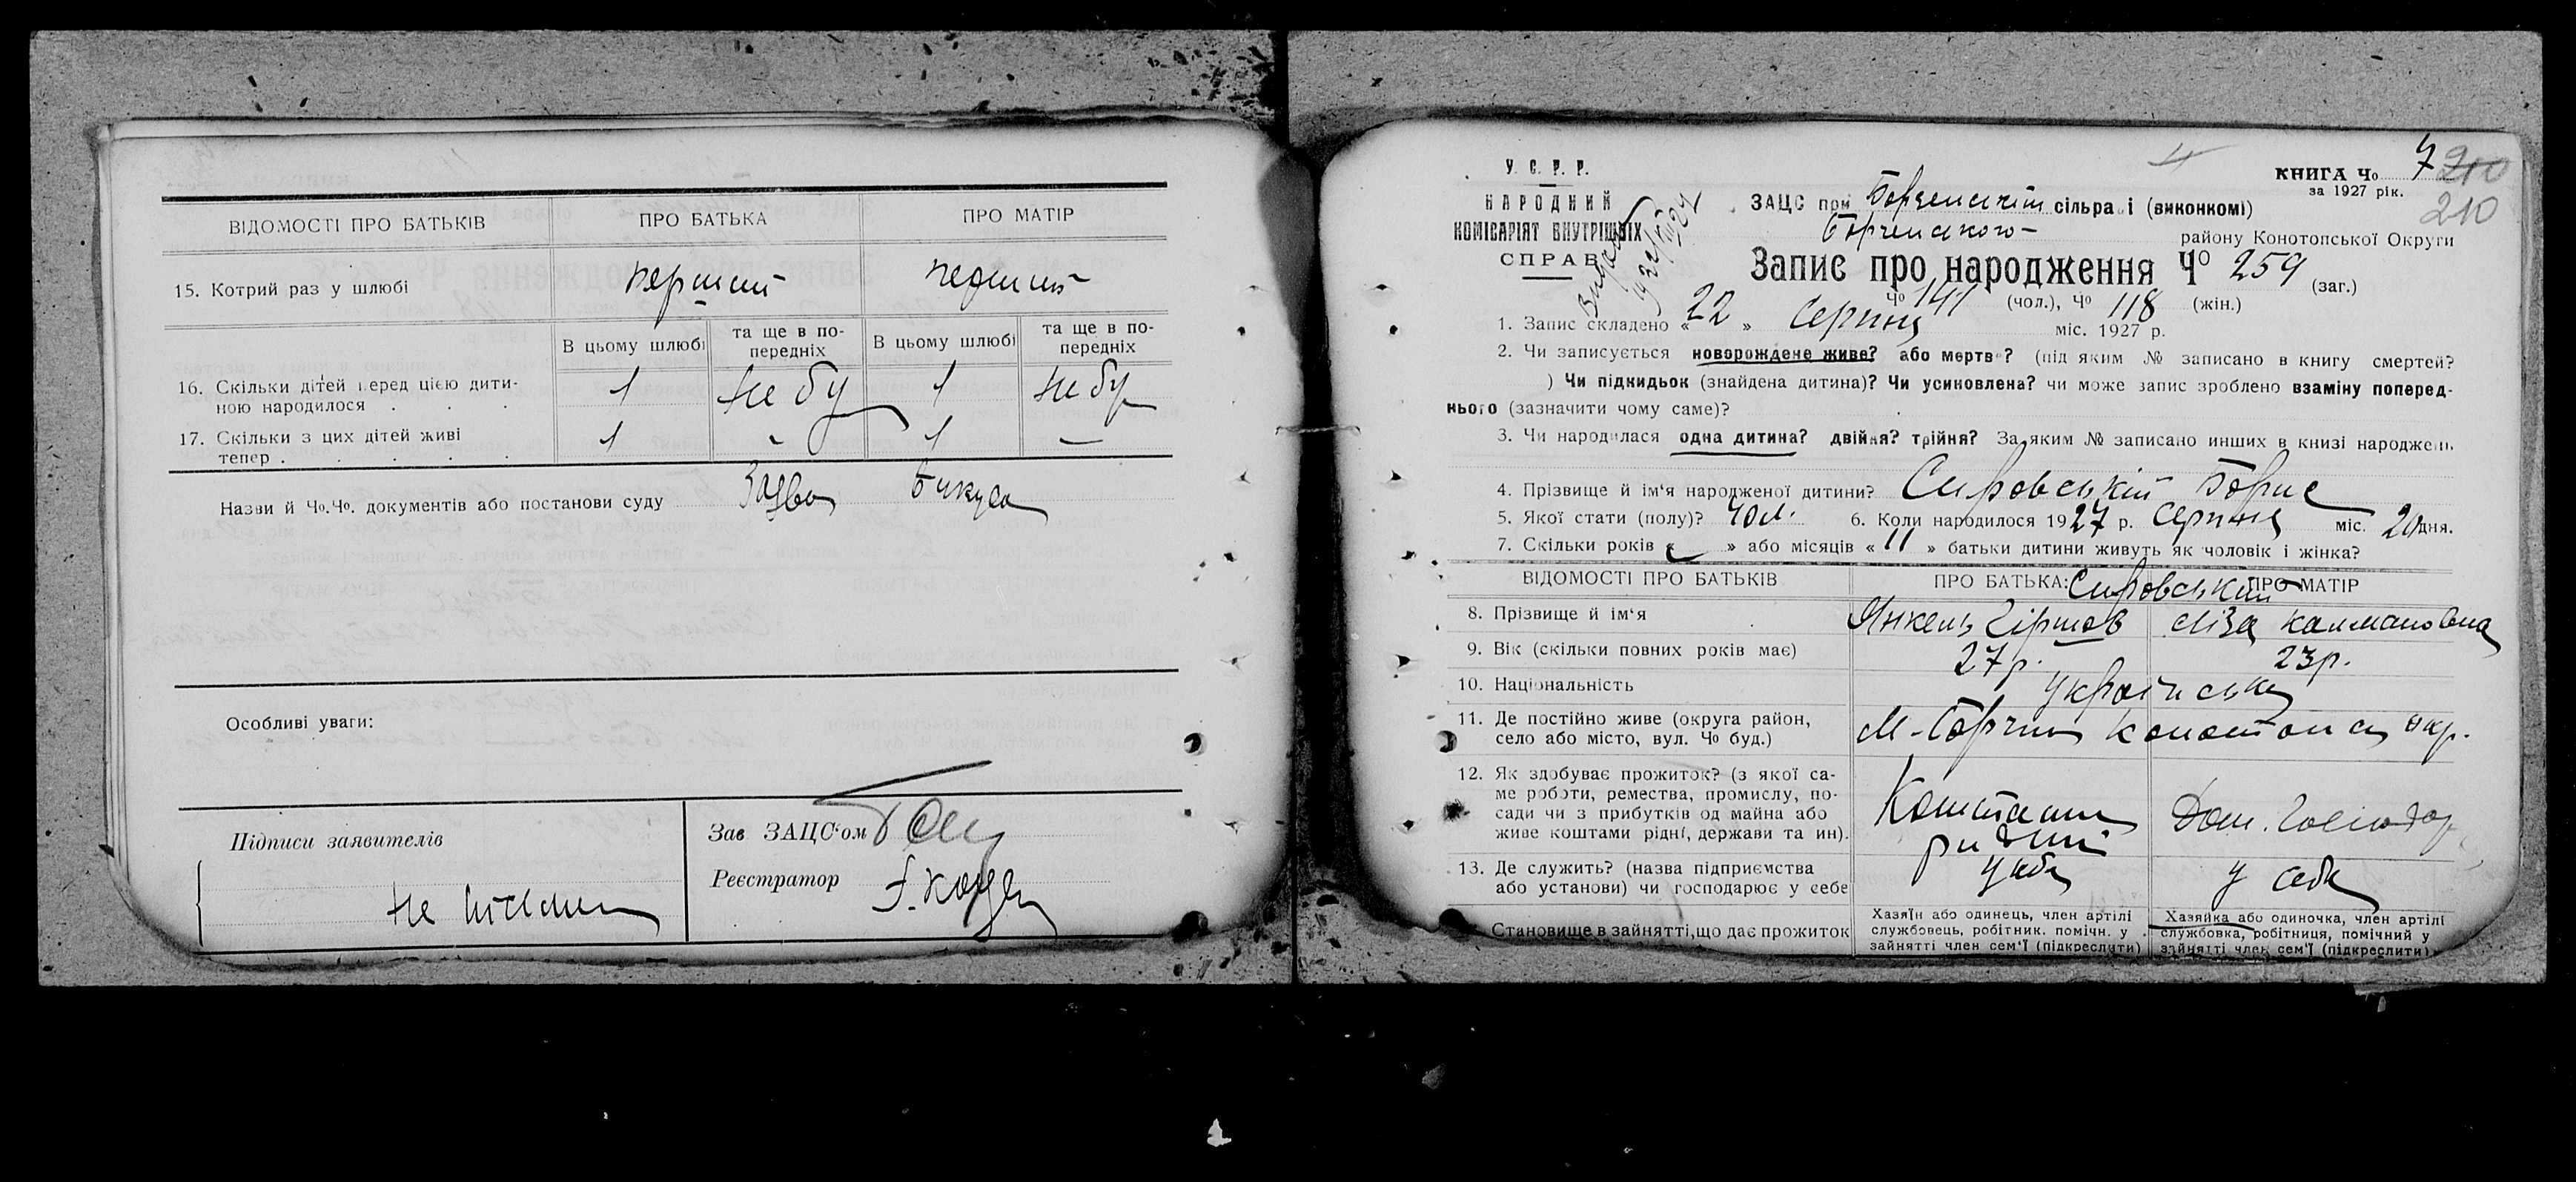 ВІДОМОСТІ ПРО БАТЬКІВ
ПРО БАТЬКА
ПРО МАТІР
15. Котрий раз у шлюбі
перший
перший
В цьому шлюбі
та ще в по-
передніх
В цьому шлюбі
та ще в по-
передніх
16. Скільки дітей перед цією дити-
ною народилося . . .
1
не бу
1
не бу
17. Скільки з цих дітей живі
тепер . . . . .
1
-
1
—
Назви й Чо.Чо. документів або постанови суду
Особливі уваги:
Підписи заявителів
Зав ЗАЦС‘ом
Реєстратор
У. С. Р. Р.
НАРОДНИЙ
КОМІСАРІЯТ ВНУТРІШНІХ
СПРАВ
КНИГА Чо 7
210
210
за 1927 рік.
ЗАЦС при Борзенскім сільраді (виконкомі)
Борзенського района Конотопської Округи
Запис про народження Чо 259 (заг.)
Чо 141 (чол.), Чо 118 (жін.)
1. Запис складено « 22 » Серпня міс. 1927 р.
2. Чи записується новорождене живе? або мертве? (під яким № записано в книгу смертей?
) Чи підкидьок (знайдена дитина)? Чи усиновлена? чи може запис зроблено взаміну поперед-
нього (зазначити чому саме)?
3. Чи народилася одна дитина? двійня? трійня? За яким № записано инших в книзі народжень
4. Прізвище й ім‘я народженої дитини? Сировській Борис
5. Якої стати (полу)? чол. 6. Коли народилося 1927 р. Серпня міс. 20 дня.
7. Скільки років « » або місяців « 11 » батьки дитини живуть як чоловік і жінка?
ВІДОМОСТІ ПРО БАТЬКІВ
ПРО БАТЬКА:
ПРО МАТІР
Сировський
8. Прізвище й ім‘я
Янкель Гіршов
Ліза Калмановна
9. Вік (скільки повних років має)
27 р.
23 р.
10. Національність
українська
11. Де постійно живе (округа район,
село або місто, вул. Чо буд.)
М-Борзна Конотопск окр.
12. Як здобуває прожиток? (з якої са-
ме роботи, ремества, промислу, по-
сади чи з прибутків од майна або
живе коштами рідні, держави та ин).
Коштами
рідни
Дом. Господар
13. Де служить? (назва підприємства
або установи) чи господарює у себе
у себе
Становище в зайнятті, що дає прожиток
Хазяїн або одинець, член артілі
службовець, робітник. помічн. у
зайнятті член сем‘ї (підкреслити)
Хазяйка або одиночка, член артілі
службовка, робітниця, помічний у
зайнятті член сем‘ї (підкреслити)